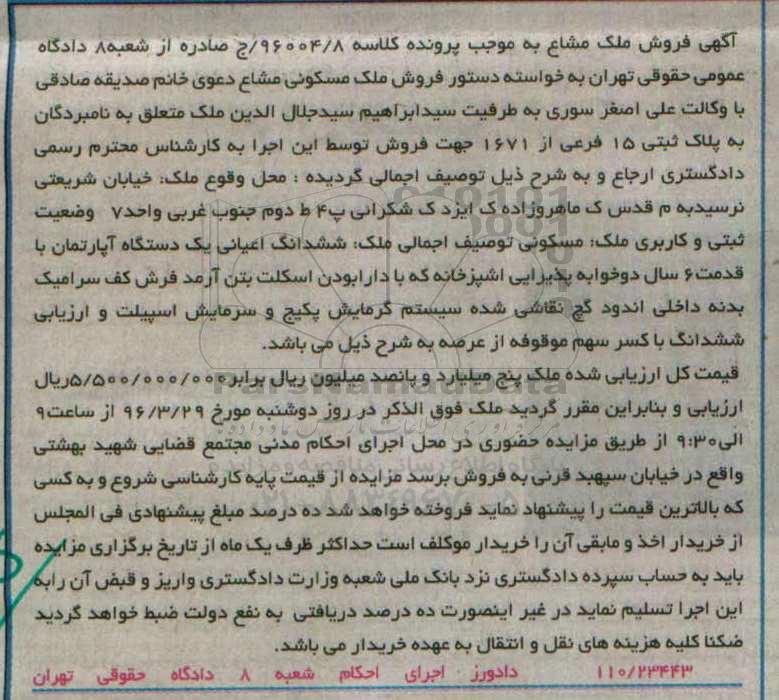 آگهی فروش ملک مشاع به موجب پرونده کلاسه ۹۶۰۰۴/۸/ج صادره از شعبه۸ دادگاه
عمومی حقوقی تهران به خواسته دستور فروش ملک مسکونی مشاع دعوی خانم صدیقه صادقی
با وکالت علی اصغر سوری به طرفیت سیدابراهیم سیدجلال الدین ملک متعلق به نامبردگان
به پلاک ثبتی ۱۵ فرعی از ۱۶۷۱ جهت فروش توسط این اجرا به کارشناس محترم رسمی
دادگستری ارجاع و به شرح ذیل توصیف اجمالی گردیده : محل وقوع ملک: خیابان شریعتی
نرسیدبه م قدس ک ماهروزاده ک ایزد ک شکرائی پ۴ ط دوم جنوب غربی واحد۷ وضعیت
ثبتی و کاربری ملک: مسکونی توصیف اجمالی ملک: ششدانگ اعیانی یک دستگاه آپارتمان با
قدمت۶ سال دوخوابه پذیرایی اشپزخانه که با دارابودن اسکلت بتن آرمد فرش کف سرامیک
بدنه داخلی اندود گچ نقاشی شده سیستم گرمایش پکیج و سرمایش اسپیلت و ارزیابی
ششدانگ با کسر سهم موقوفه از عرصه به شرح ذیل می باشد.
قیمت کل ارزیابی شده ملک پنج میلیارد و پانصد میلیون ریال برابر۵/۵۰۰/۰۰۰/۰۰۰ریال
ارزیابی و بنابراین مقرر گردید ملک فوق الذکر در روز دوشنبه مورخ ۹۶/۳/۲۹ از ساعت۹
الی۹:۳۰ از طریق مزایده حضوری در محل اجرای احکام مدنی مجتمع قضایی شهید بهشتی
واقع در خیابان سپهبد قرنی به فروش برسد مزایده از قیمت پایه کارشناسی شروع و به کسی
که بالاترین قیمت را پیشنهاد نماید فروخته خواهد شد ده درصد مبلغ پیشنهادی فی المجلس
از خریدار اخذ و مابقی آن را خریدار موکلف است حداکثر ظرف یک ماه از تاریخ برگزاری مزایده
باید به حساب سپرده دادگستری نزد بانک ملی شعبه وزارت دادگستری واریز و قبض آن رابه
این اجرا تسلیم نماید در غیر اینصورت ده درصد دریافتی به نفع دولت ضبط خواهد گردید
ضکنا کلیه هزینه های نقل و انتقال به عهده خریدار می باشد.
۱۱۰/۲۳۴۴۳ دادورز اجرای احکام شعبه ۸ دادگاه حقوقی تهران
ParsNamadData